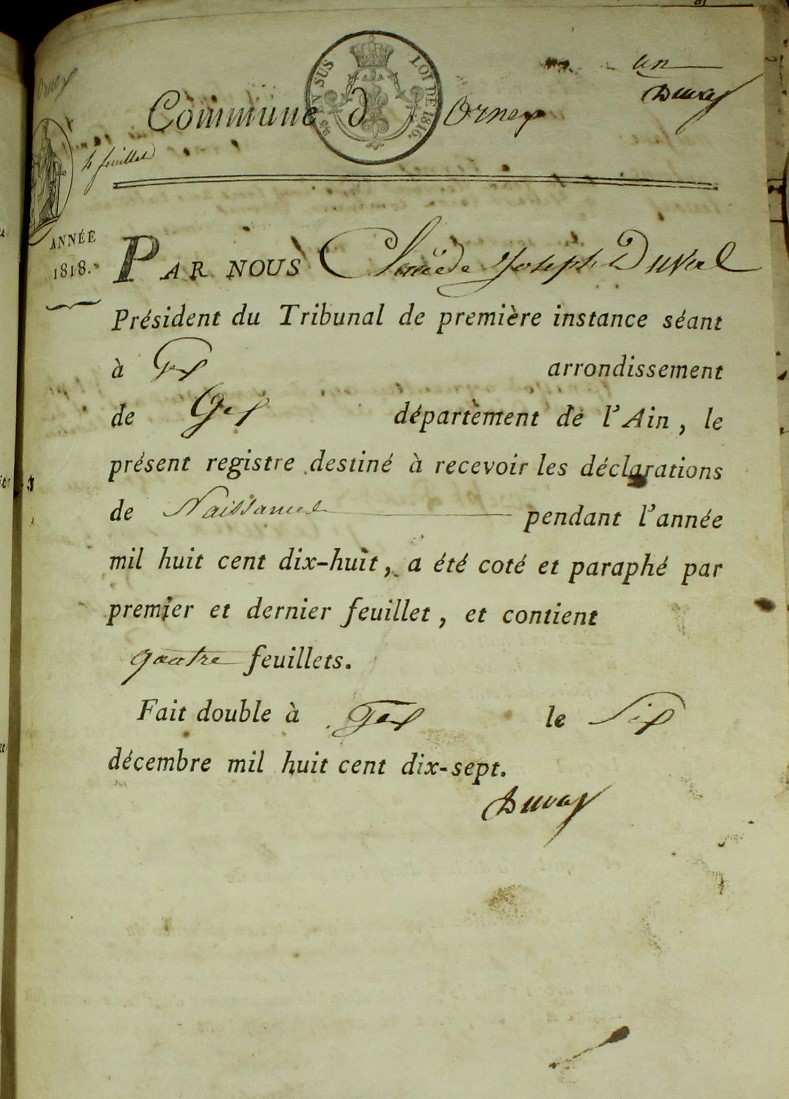 un
Duval
Commune d'Ornex
EN SUS LOI DE 1816.
4 feuillets
ANNÉE
1818.
PAR NOUS Amédée Joseph Duval
Président du Tribunal de première instance séant
à Gex arrondissement
de Gex département de l'Ain, le
présent registre destiné à recevoir les déclarations
de Naissances pendant l'année
mil huit cent dix-huit, a été coté et paraphé par
premier et dernier feuillet, et contient
quatre feuillets.
Fait double à Gex le Six
décembre mil huit cent dix-sept.
Duval